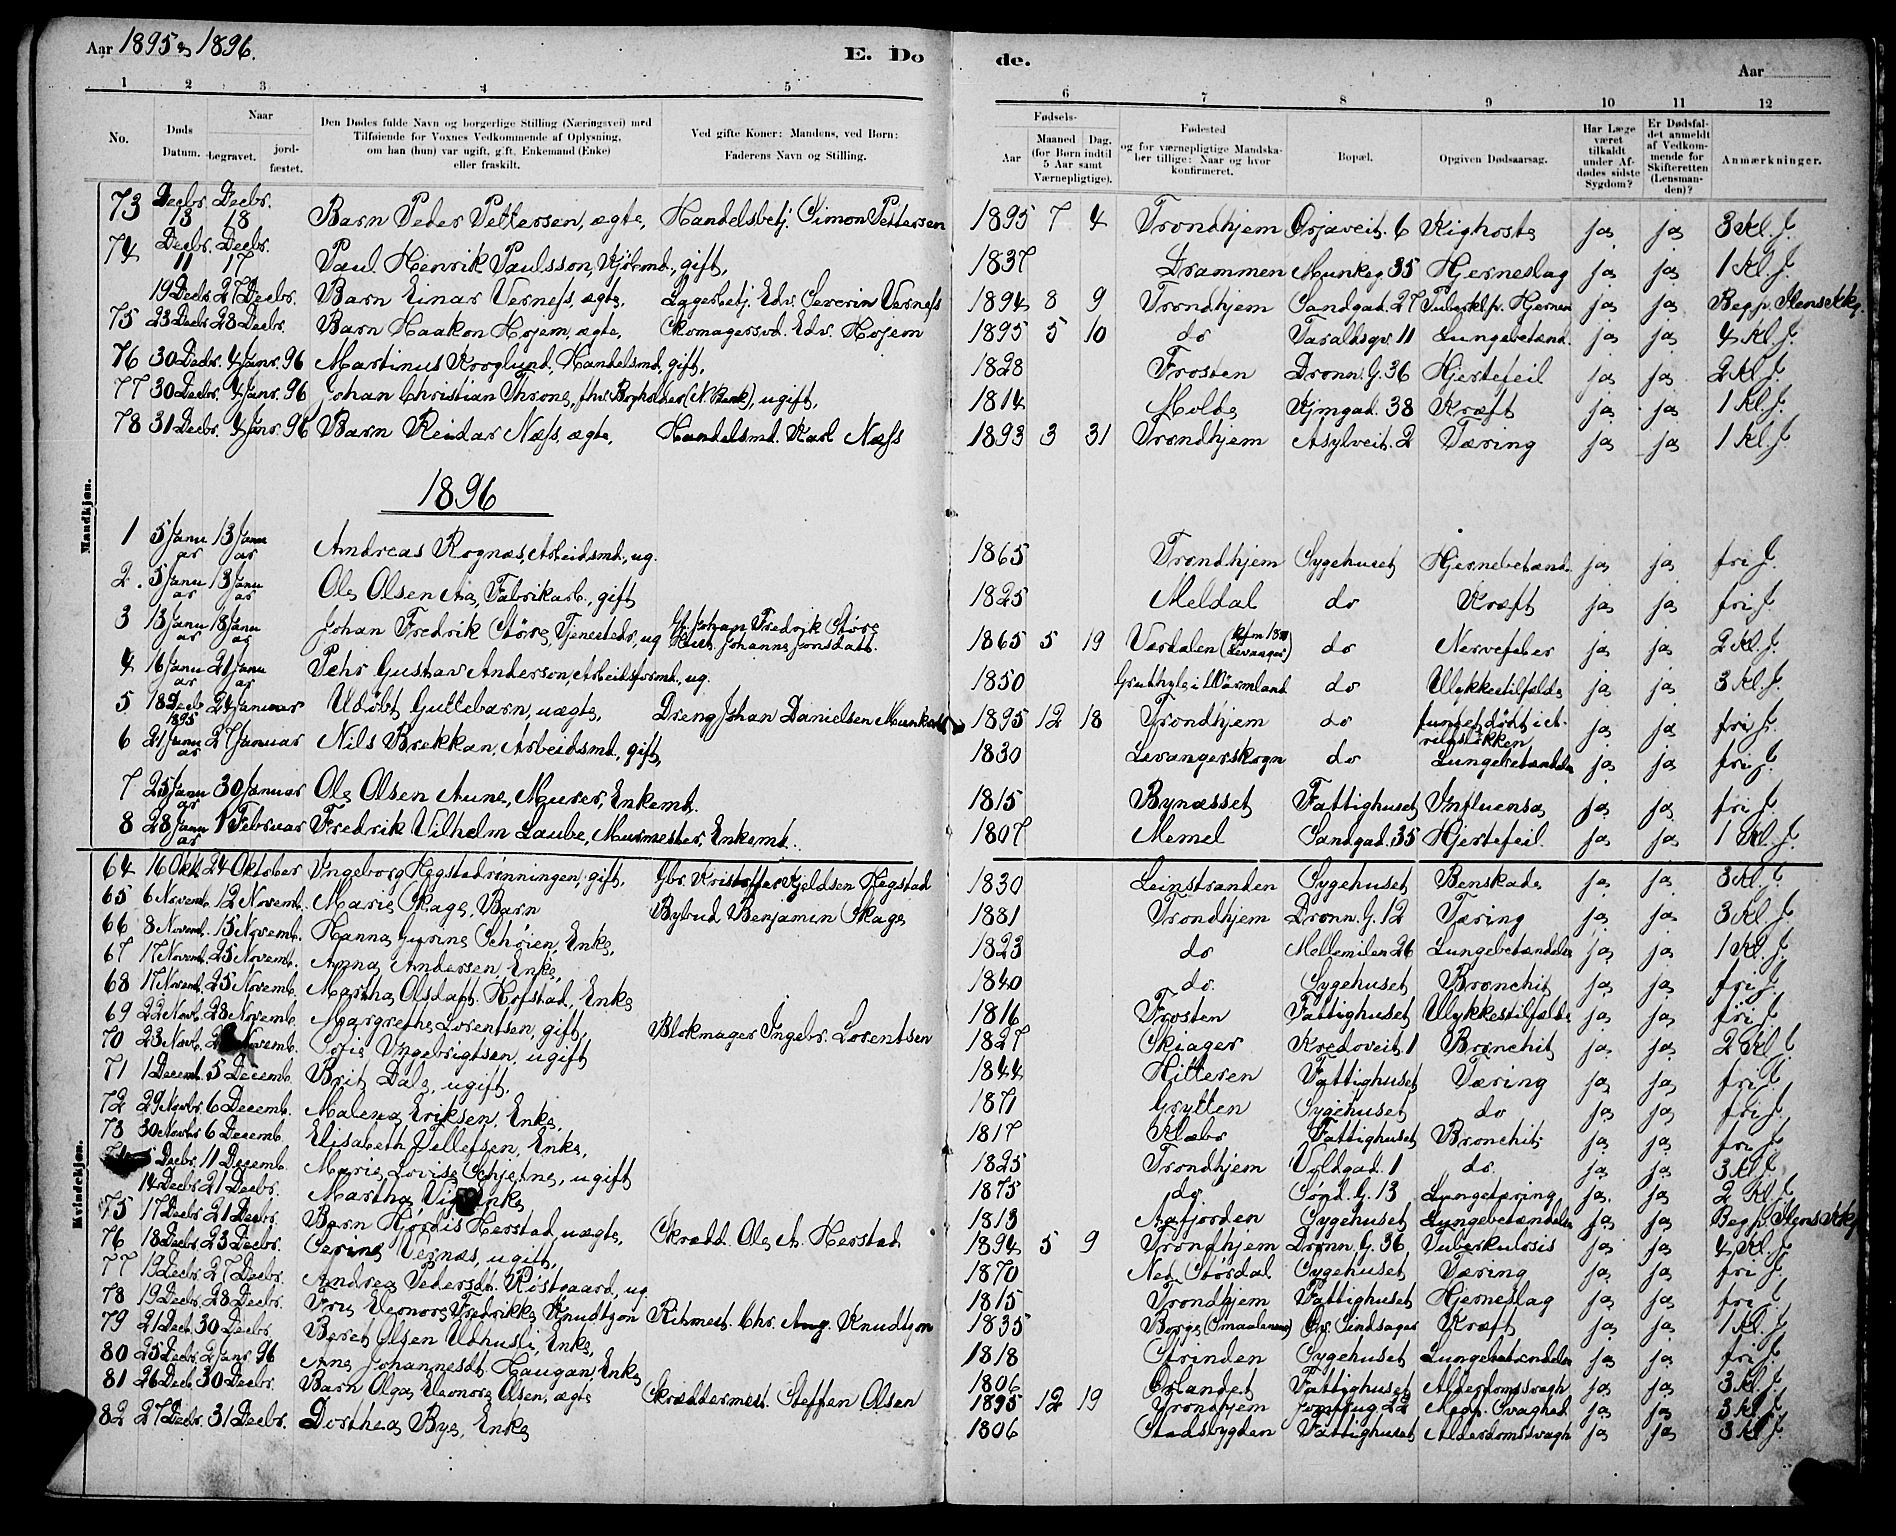 Aar 1895 & 1896.
E. Do
de.
Aar
1 2 3 4 5 6 7 8 9 10 11 12
No.
Døds Datum.
Naar
begravet.
jordfæstet.
Den Dødes fulde Navn og borgerlige Stilling (Næringsvei) med
Tilføiende for Voxnes Vedkommende af Oplysning,
om han (hun) var ugift, gift, Enkemand (Enke)
eller fraskilt.
Ved gifte Koner: Mandens, ved Børn:
Faderens Navn og Stilling.
Fødsels-
Aar
Maaned Dag.
(for Børn indtil
5 Aar samt
Værnepligtige).
Fødested
og for værnepligtige Mandskaber tillige: Naar og hvor
konfirmeret.
Bopæl.
Opgiven Dødsaarsag.
Har Læge
været
tilkaldt
under Afdødes sidste
Sygdom?
Er Dødsfaldet anmeldt
af Vedkommende for
Skifteretten
(Lensmanden)?
Anmærkninger.
Mandkjøn.
73 Decbr. 13 Decbr. 18 Barn Peder Pettersen, ægte, Handelsbetj. Simon Pettersen 1895 7 4 Trondhjem Örjaveit. 6 Kighoste ja ja 3 Kl. J.
74 Decbr. 11 Decbr. 17 Paul Henrik Paulsson, Kjöbmd., gift, 1837 Drammen Munkeg 35 Hjerneslag ja ja 1 Kl. J.
19 Decbr. 27 Decbr. Barn Einar Verness, ægte, Lagerbetj. Edv. Severin Verness 1894 8 9 Trondhjem Sandgad. 27 Tuberkl. p. Hjernen ja ja Beg. p. Stens Kkg.
75 23 Decbr. 28 Decbr. Barn Haakon Hojem, ægte, Skomagersvd. Edv. Hojem 1895 5 10 do Taraldsgv. 11 Lungebetænd. ja ja 4 Kl. J.
76 30 Decbr. 4 Janr. 96 Martinus Kroglund, Handelsmd, gift, 1828 Frosten Dronn. G. 36 Hjertefeil ja ja 2 Kl. J.
77 30 Decbr. 4 Janr. 96 Johan Christian Throne, fhv. Bogholder (N. Bank), ugift, 1814 Molde Kjmgad. 38 Kræft ja ja 1 Kl. J.
78 31 Decbr. 4 Janr. 96 Barn Reidar Næss, ægte, Handelsmd. Karl Næss 1893 3 31 Trondhjem Asylveit. 2 Tæring ja ja 1 Kl. J.
1896
1 5 Januar 13 Januar Andreas Rognæs, Arbeidsmd., ug. 1865 Trondhjem Sygehuset Hjernebetænd. ja ja fri J.
2. 5 Januar 13 Januar Ole Olsen Aa, Fabrikarb., gift 1825 Meldal do Kræft ja ja fri J.
3 13 Januar 18 Januar Johan Fredrik Störe, Tjenestedr, ug Johan Fredrik Störe Johanna Jonsdatt. 1865 5 19 Værdalen (Levanger) do Nervefeber ja ja 2 Kl. J.
4 16 Januar 21 Januar Pehr Gustav Anderson, Arbeidsformd., ug. 1850 i Wärmland do Ulykkestilfælde ja ja 3 Kl. J.
5 18 Decb 1895 24 Januar Udöbt Guttebarn, uægte, Dreng Johan Danielsen 1895 12 18 Trondhjem do fundet dödt ja ja fri J.
6 21 Januar 27 Januar Nils Brekkan, Arbeidsmd., gift, 1830 Levangerskogn do Lungebetændelse ja ja fri J.
7 25 Januar 30 Januar Ole Olsen Aune, Murer, Enkemd. 1815 Bynæsset Fattighuset Influensa ja ja fri J.
8 28 Januar 1 Februar Fredrik Vilhelm Laube, Murmester, Enkemd. 1807 Memel Sandgad. 35 Hjertefeil. ja ja 1 Kl. J.
Kvindekjøn.
64 16 Okt. 24 Oktober Ingeborg Hegstadrønningen, gift, Gbr. Kristoffer Kjeldsen Hegstad 1830 Leinstranden Sygehuset Benskade ja ja 3 Kl. J.
65 6 Novemb. 12 Novemb. Marie Skage, Barn Bybud Benjamin Skage 1881 Trondhjem Dronn. G. 12 Tæring ja ja 3 Kl. J.
66 8 Novemb. 15 Novemb. Hanna Gurine Schöien, Enke, 1823 do Mellemilen 26 Lungebetændelse ja ja 1 Kl. J.
67 17 Novemb. 25 Novemb. Anna Andersen, Enke, 1840 do. Sygehuset Bronchit ja ja fri J.
68 17 Novemb. 25 Novemb. Martha Olsdatt. Hofstad, Enke 1816 Frosten Fattighuset Ulykkestilfælde ja ja fri J.
69 22 Novb. 28 Novemb. Margrethe Lorentsen, gift, Blokmager Ingebr. Lorentsen 1827 Skiager Kredoveit. 1 Bronchit ja ja 2 Kl. J.
70 23 Novb. Novemb. Sofie Yngebrigtsen, ugift 1844 Hitteren Fattighuset Tæring ja ja fri J.
71 1 Decemb. 5 Decemb. Brit Dale, ugift, 1871 Grytten Sygehuset do ja ja fri J.
72 29 Novbr. 6 Decemb. Malena Eriksen, Enke, 1817 Klæbo Fattighuset Bronchit ja ja fri J.
73 30 Novbr. 6 Decemb. Elisabeth Tellefsen, Enke, 1825 Trondhjem Voldgad. 1 do. ja ja 3 Kl. J.
Decbr. 11 Decemb. Marie Lovise Schjetne, ugift 1875 do. Sönd. G. 13 Lungetæring ja ja 2 Kl. J.
14 Decbr. 21 Decbr. Martha Enke 1813 Aafjorden Sygehuset Lungebetændelse ja ja Beg. p. Stens Kkg
75 17 Decbr. 21 Decbr. Barn Hjördis Herstad, uægte, Skrædd. Ole A. Herstad 1894 5 9 Trondhjem Dronn. G. 36, Tuberkulosis ja ja 4 Kl. J.
76 18 Decbr. 23 Decbr. Serine Vernæs, ugift, 1870 Ned. Stördal Sygehuset, Tæring ja ja fri J.
77 19 Decbr. 27 Decbr. Andrea Pedersdt. Röstgaard, ug. 1815 Trondhjem Fattighuset Hjerneslag ja ja fri J.
78 19 Decbr. 28 Decbr. Fru Eleonora Fredrikke Knudtzon Ritmest. Chr. Aug. Knudtzon 1835 Borge (Smaalenene) Sindsager Kræft ja ja 1 Kl. J.
79 21 Decb. 30 Decbr. Beret Olsen Udhusli, Enke, 1818 Strinden Sygehuset Lungebetændelse ja ja fri J.
80 25 Decbr. 2 Janr. 96 Ane Johannesdt. Haugan, Enke 1806 Örlandet Fattighuset Alderdomssvagh ja ja 3 Kl. J.
81 26 Decb. 30 Decbr. Barn Olga Eleonora Olsen, ægte Skræddermest. Steffen Olsen 1895 12 19 Trondhjem Jomfrug 22 Medf. Svaghed ja ja 3 Kl J.
82 27 Decbr. 31 Decbr. Dorthea Bye, Enke 1806 Stadsbygden Fattighuset Alderdomssvagh ja ja 3 Kl J.